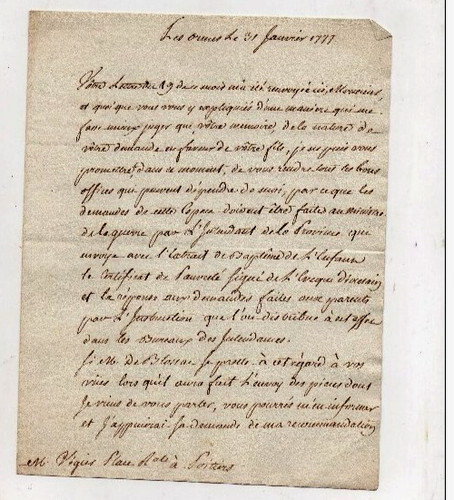 Les ormes le 31 Janvier 1777
Votre Lettre du 19 de ce mois m'a été renvoyée ici, Monsieur,
et quoi que vous vous y expliquiés d'une maniere qui me
fait mieux juger que votre memoire, de la nature de
votre demande en faveur de votre fils, je ne puis vous
promettre dans le moment, de vous rendre tous les bons
offices qui peuvent dépendre de moi, par ce que les
demandes de cette Espece doivent être faites au ministre
de la guerre par L'Intendant de la Province qui
envoye avec l'Extrait de Baptême de L'Enfant
le Certificat de Pauvreté signé de L'Eveque Diocesain
et la réponse aux demandes faites aux parents
par L'Instruction que l'on distribue à cet effet
dans les Bureaux des Intendances.
Si M. De Blossac se prette à cet égard à vos
vues lors qu'il aura fait l'envoy des pieces dont
Je viens de vous parler, vous pourrés m'en informer
et J'appuirai sa demande de ma recommandation
M. Place Rale à Poitiers